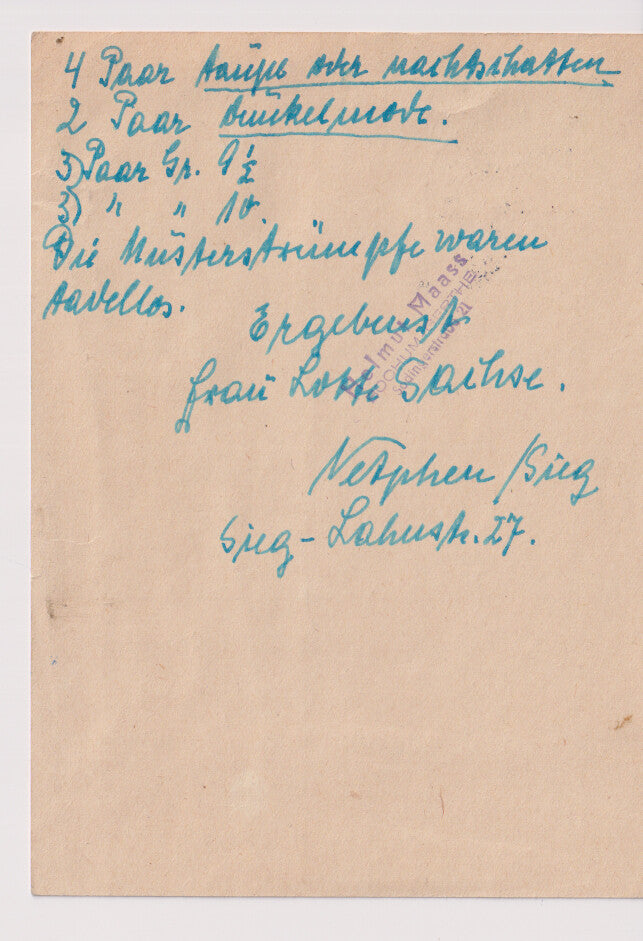 4 Paar taupe oder nachtschatten
2 Paar dunkelmode.
3) Paar Gr. 9 1/2
3) " " 10.
Die Musterstrümpfe waren
tadellos.
Ergebenst
Frau Lotte Sachse.
Netphen /Sieg
Sieg-Lahnstr. 27.
Helmut Maass
BOCHUM-